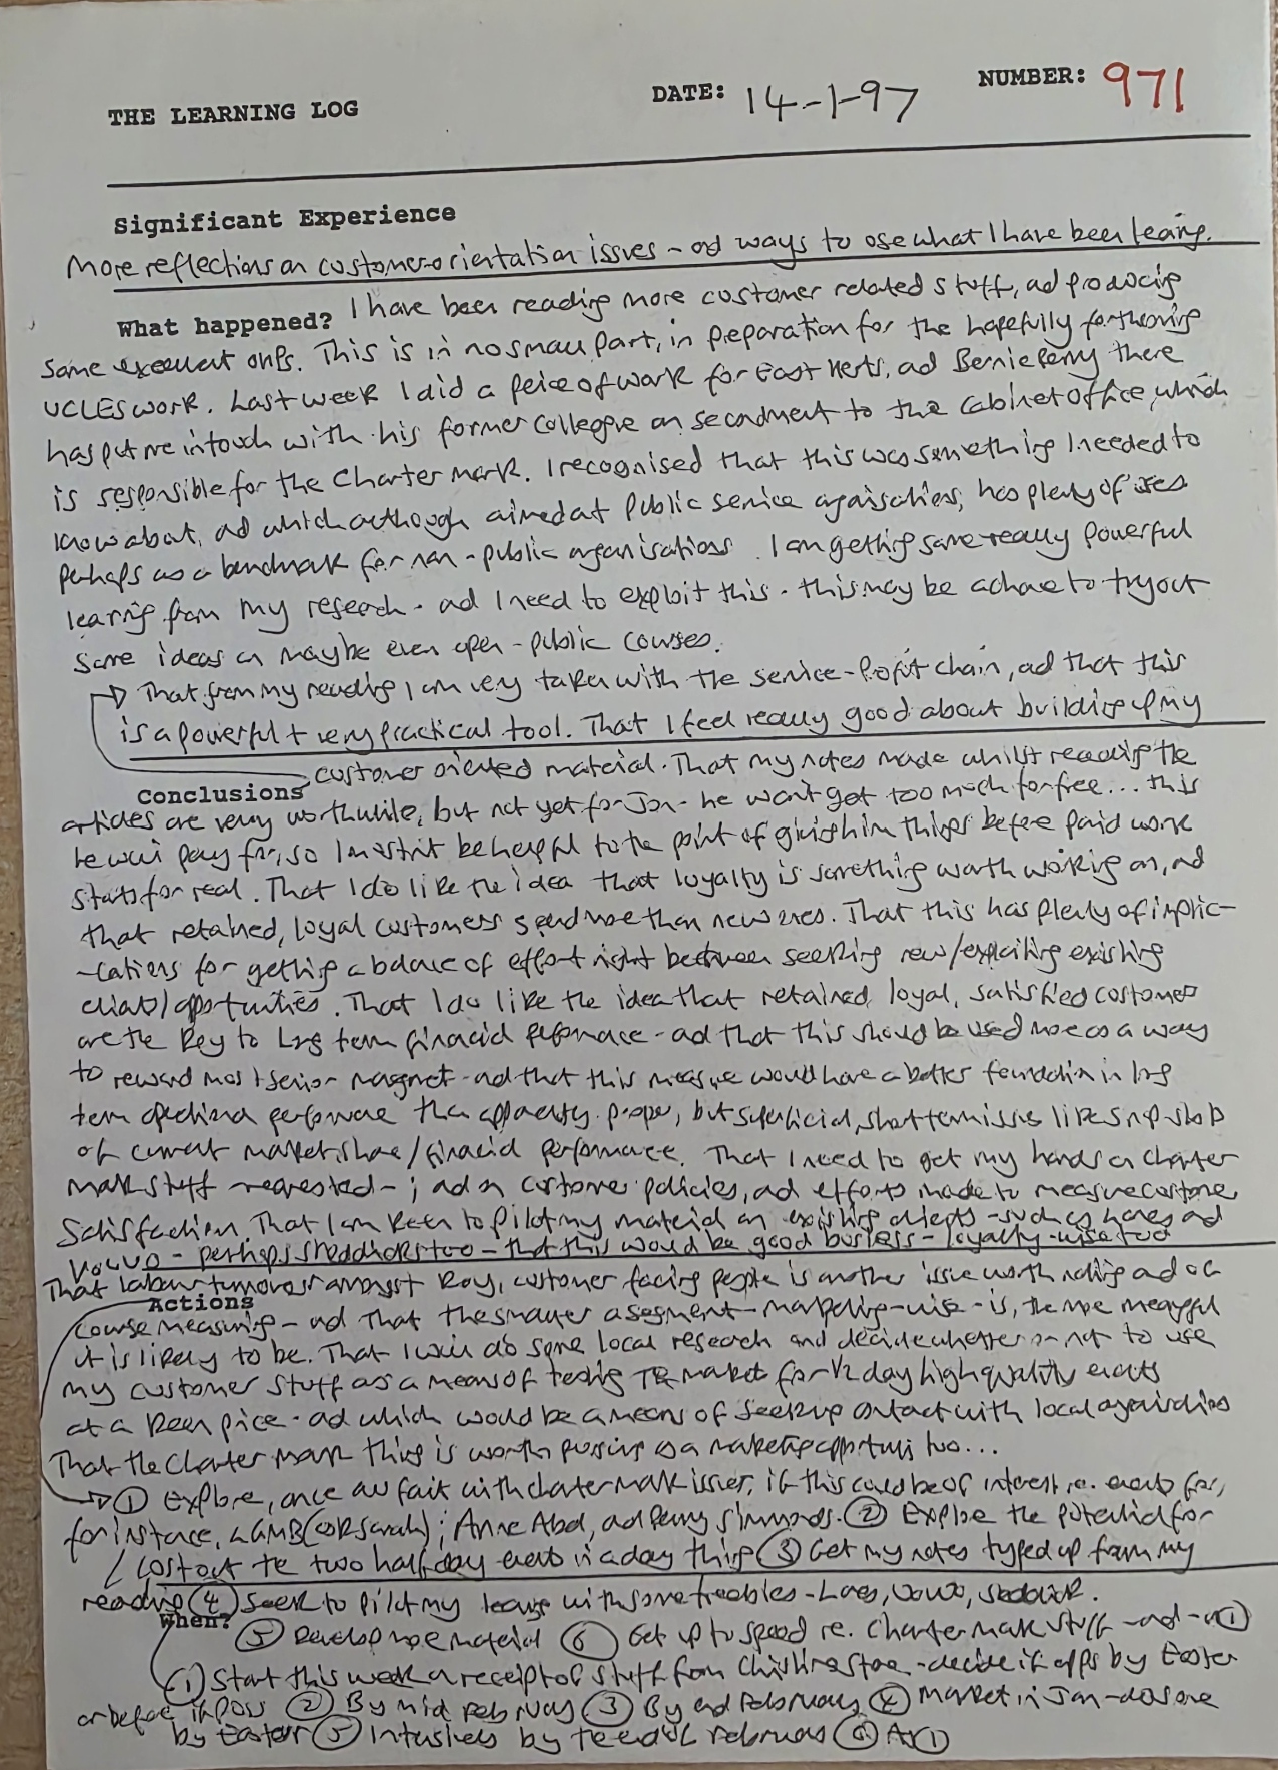 THE LEARNING LOG DATE: 14-1-97 NUMBER: 971
Significant Experience
More reflections on customer-orientation issues - ad ways to use what I have been learing.
What happened? I have been reading more customer related stuff, ad producing
some excellent ohps. This is in no small part, in preparation for the hopefully forthcoming
UCLES work. Last week I did a peice of work for East Herts, ad Bernie Perry there
has put me in touch with his former collegue on secondment to the Cabinet Office, which
is responsible for the Charter mark. I recognised that this was something I needed to
know about, ad which although aimed at public service organisations, has plenty of uses
perhaps as a benchmark for non-public organisations. I am getting some really powerful
learing from my research - ad I need to exploit this - this may be a chance to try out
some ideas on maybe even open-public courses.
That from my reading I am very taken with the service-profit chain, ad that this
is a powerful + very practical tool. That I feel really good about building up my
Conclusions customer oriented material. That my notes made whilst reading the
articles are very worthwhile, but not yet for Jon - he won't get too much for free... this
he will pay for, so I mustnt be helpful to the point of giving him things before paid work
starts for real. That I do like the idea that loyalty is something worth working on, ad
that retained, loyal customers spend more than new ones. That this has plenty of implic-
-cations for getting a balance of effort right between seeking new/exploiting existing
clients/opportunities. That I do like the idea that retained, loyal, satisfied customers
are the key to long term financial performance - ad that this should be used more as a way
to reward most senior - ad that this measure would have a better foundation in long
term performance than apparently proper, but superficial, short term issues like snapshots
of current market share/financial performance. That I need to get my hands on charter
mark stuff - requested - ; ad on customer policies, ad efforts made to measure customer
satisfaction. That I am keen to pilot my material on existing clients - such as ad
- perhaps too - that this would be good business - loyalty-wise too
That labour turnover amongst key, customer facing people is another issue worth noting ad of
Actions
course measuring - ad that the smaller a segment - marketing-wise - is, the more meaningful
it is likely to be. That I will do some local research and decide whether or not to use
my customer stuff as a means of testing the market for 1/2 day high quality events
at a keen price - ad which would be a means of contact with local organisations
That the Charter Mark thing is worth pursing as a marketing opportuni too...
① Explore, once au fait with charter mark issues, if this could be of interest i.e. events for,
for instance, LGMB (OR Sarah); Anne Abel, ad Penny Simmonds. ② Explore the potential for
/ cost out te two half day events in a day thing ③ Get my notes typed up from my
reading ④ Seek to pilot my learing with some freebies -
When?
⑤ Develop more material ⑥ Get up to speed re. charter mark stuff - ad - ①
① Start this week on receipt of stuff from - decide if opps by Easter
or before if poss ② By mid February ③ By end February ④ Market in Jan - do some
by Easter ⑤ by the end of February ⑥ As ①